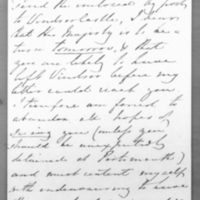 send the enclosed by post
to Windsor Castle, I hear
that Her Majesty is to be in
town tomorrow, & that
you are likely to have
left Windsor before my
letter could reach you
I therefore am forced to
abandon all hopes of
seeing you (unless you
should be unexpectedly
detained at Portsmouth)
and must content myself
with endeavouring to